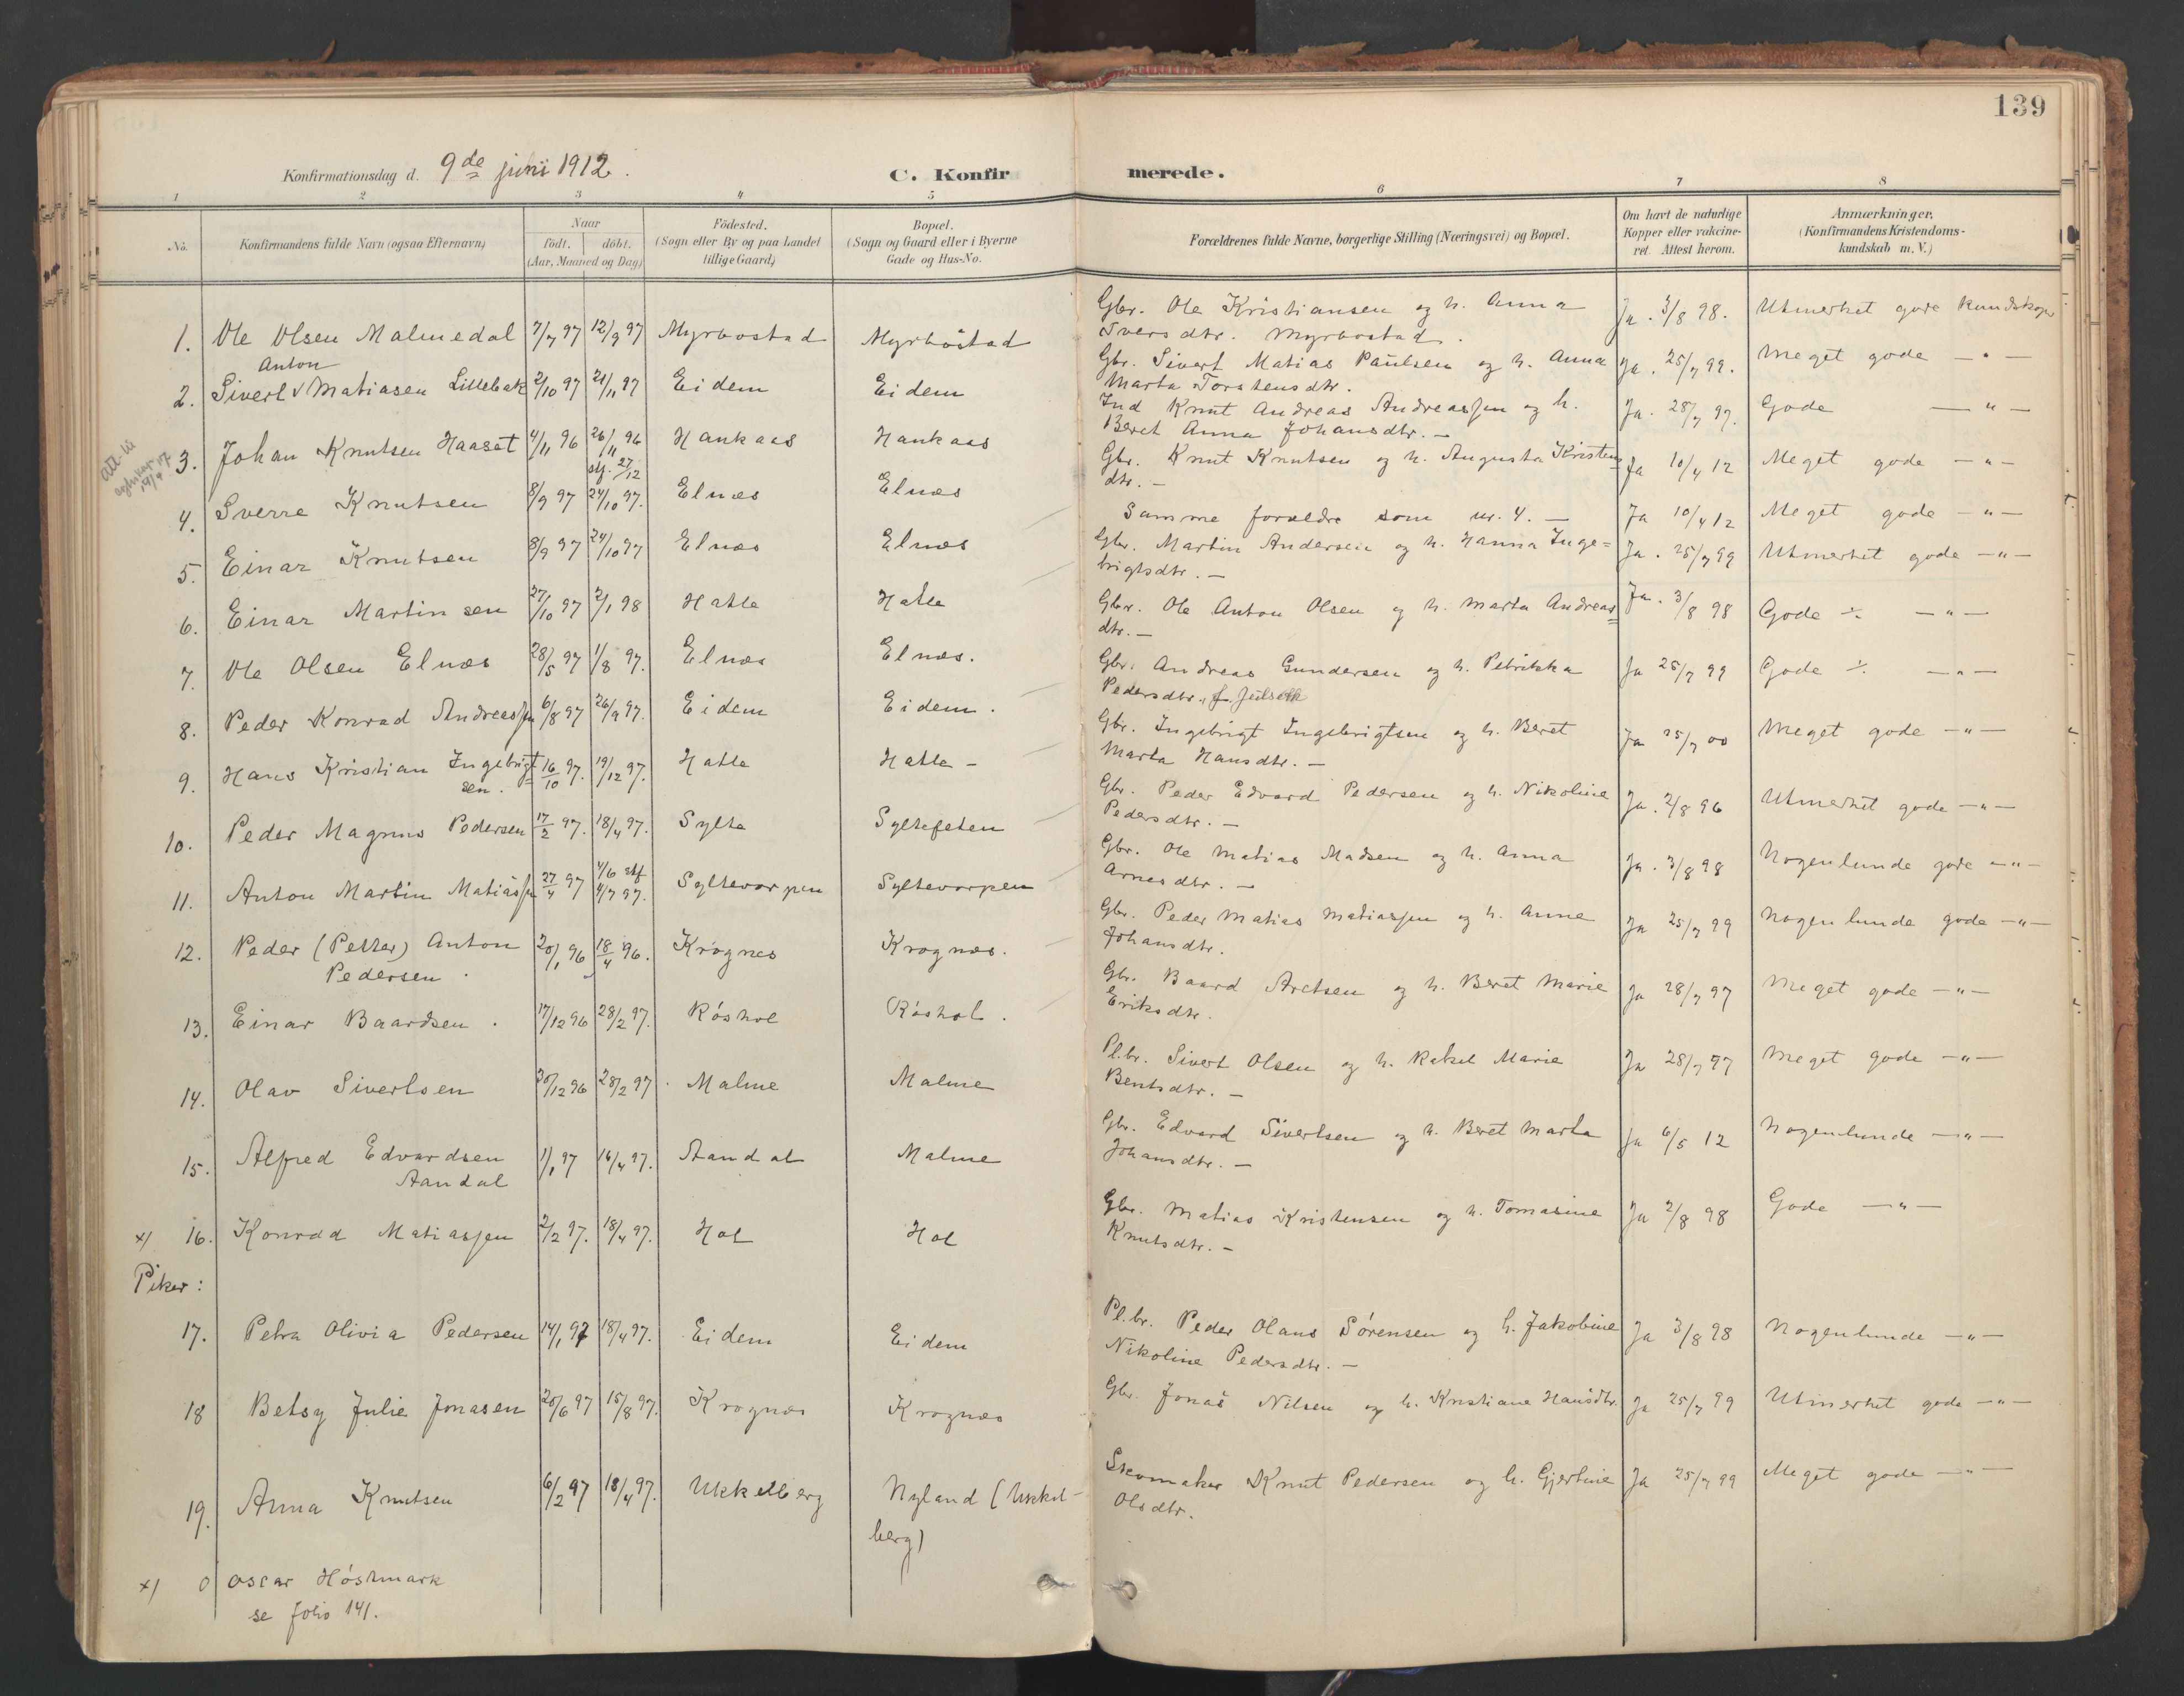 139
Konfirmationsdag d. 9de juni 1912.
C. Konfirmerede.
1 2 3 4 5 6 7 8
No. Konfirmandens fulde Navn (ogsaa Efternavn)
Naar födt. döbt. (Aar, Maaned og Dag)
Födested. (Sogn eller By og paa Landet tillige Gaard)
Bopæl. (Sogn og Gaard eller i Byerne Gade og Hus-No.
Forældrenes fulde Navne, borgerlige Stilling (Næringsvei) og Bopæl.
Om havt de naturlige Kopper eller vakcineret. Attest herom.
Anmærkninger. (Konfirmandens Kristendomskundskab m. V.)
1. Ole Olsen Malmedal 7/7 97 12/9 97 Myrbostad Myrbostad Gbr. Ole Kristiansen og h. Anna Ja. 3/8 98. Utmerket gode kundskaper
Iversdtr. Myrbostad.
2. Sivert Anton Matiasen Lillebak 2/10 97 21/11 97 Eidem Eidem Gbr. Sivert Matias Paulsen og h. Anna Ja. 25/7 99. Meget gode — " —
Marta Torstensdtr.
3. Johan Knutsen Haaset 4/11 96 26/11 96 Haukaas Haukaas Ind Knut Andreas Andreassen og h. Ja. 28/7 97. Gode — " —
stf. 27/12
Beret Anna Johansdtr. —
4. Sverre Knutsen 8/9 97 24/10 97. Elnæs Elnæs Gbr. Knut Knutsen og h. Augusta Kristens Ja 10/4 12 Meget gode — " —
dtr. —
5. Einar Knutsen 8/9 97 24/10 97 Elnæs Elnæs Samme forældre som nr. 4. — Ja 10/4 12 Meget gode — " —
6. Einar Martinsen 27/10 97 2/1 98 Hatle Hatle Gbr. Martin Andersen og h. Hanna Inge= Ja. 25/7 99 Utmerket gode — " —
brigtsdtr. —
7. Ole Olsen Elnæs 28/5 97 1/8 97. Elnæs Elnæs. Gbr. Ole Anton Olsen og h. Marta Andreas= Ja. 3/8 98 Gode ÷ — " —
dtr. —
8. Peder Konrad Andreassen 6/8 97 26/9 97. Eidem Eidem. Gbr. Andreas Gundersen og h. Petrikka Ja 25/7 99 Gode ÷ — " —
Pedersdtr., f. Julseth
9. Hans Kristian Ingebrigt= 16/10 97. 19/12 97. Hatle Hatle — Gbr. Ingebrigt Ingebrigtsen og h. Beret Ja 25/7 00 Meget gode — " —
sen. Marta Hansdtr. —
10. Peder Magnus Pedersen 17/2 97. 18/4 97. Sylte Syltefeten Gbr. Peder Edvard Pedersen og h. Nikoline Ja. 2/8 96 Utmerket gode — " —
Pedersdtr. —
11. Anton Martin Matiassen 27/4 97 4/6 stf 4/7 97. Syltevorpen Syltevorpen Gbr. Ole Matias Madsen og h. Anna Ja. 3/8 98 Nogenlunde gode — " —
Arnesdtr. —
12. Peder (Petter) Anton 20/1 96 18/4 96. Krognes Krognæs. Gbr. Peder Matias Matiassen og h. Anne Ja 25/7 99 Nogenlunde gode — " —
Pedersen. Johansdtr.
13. Einar Baardsen. 17/12 96 28/2 97. Röshol Röshol. Gbr. Baard Aretsen og h. Beret Marie Ja 28/7 97 Meget gode — " —
Eriksdtr.
14. Olav Sivertsen 30/12 96 28/2 97. Malme Malme Pl.br. Sivert Olsen og h. Rakel Marie Ja 28/7 97 Meget gode — " —
Bentsdtr. —
15. Alfred Edvardsen 1/1 97 16/4 97. Aandal Malme Gbr. Edvard Sivertsen og h. Beret Marta Ja 6/5 12 Nogenlunde — " —
Aandal Johansdtr. —
x) 16. Konrad Matiassen 2/2 97. 18/4 97. Hol Hol Gbr. Matias Kristensen og h. Tomasine Ja 2/8 98 Gode — " —
Knutsdtr. —
Piker:
17. Petra Olivia Pedersen 14/1 97 18/4 97. Eidem Eidem Pl.br. Peder Olaus Sörensen og h. Jakobine Ja 3/8 98 Nogenlunde — " —
Nikoline Pedersdtr. —
18 Betsy Julie Jonasen 20/6 97 15/8 97. Krognæs Krognæs Gbr. Jonas Nilsen og h. Kristiane Hansdtr. Ja 25/7 99 Utmerket gode — " —
19. Anna Knutsen 6/2 97 18/4 97. Ukkelberg Nyland (Ukkel- Skomaker Knut Pedersen og h. Gjertine Ja 25/7 99 Meget gode — " —
berg) Olsdtr.
x) 0 Oscar Höstmark
se folio 141.